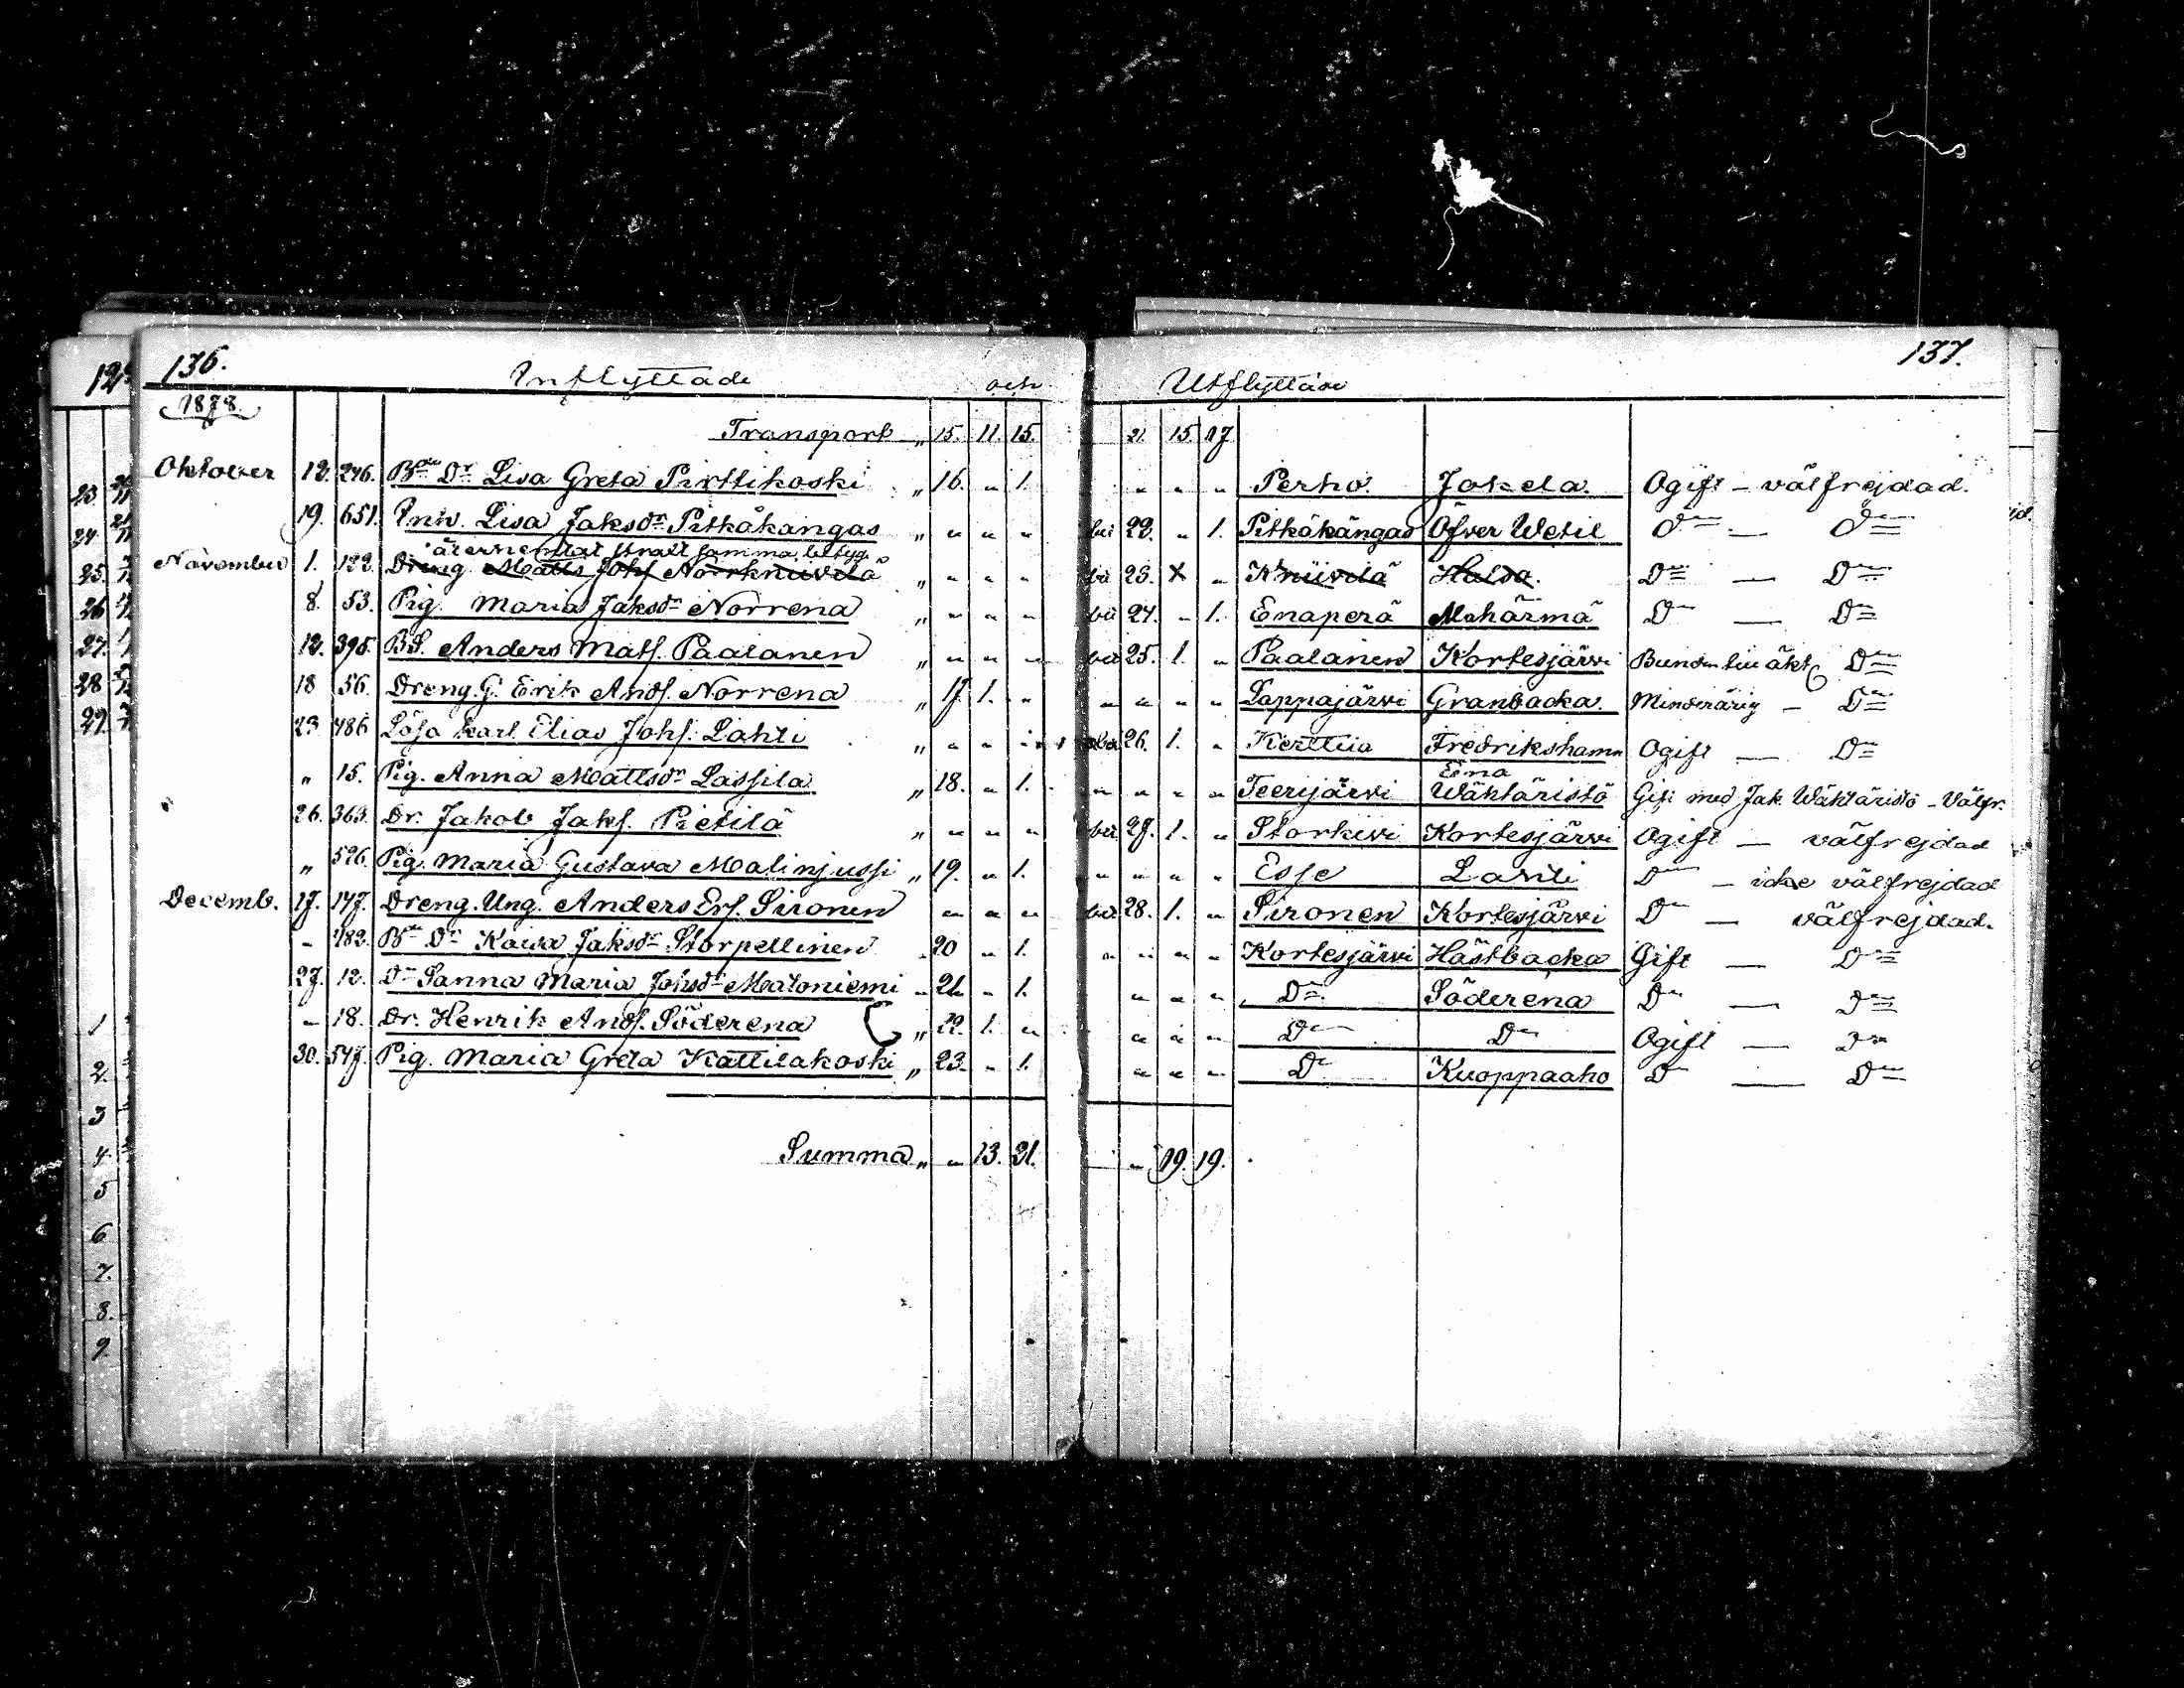 136. Inflyttade och Utflyttade 137.
1878.
Transport „ 15. 11. 15. 21. 15. 17
Oktober 12. 246. Bde Dr Lisa Greta Pirttikoski „ 16. „ 1. „ „ „ Perho. Jokela. Ogift – välfrejdad.
19. 651. Inh. Lisa Jaksdr Pitkäkangas „ „ „ „ 22. „ 1. Pitkäkangas Öfver Wetil Do — Do
återhemtat strax samma betyg.
November 1. 122. Dreng Matts Johs. Norrkniivilä „ „ „ „ 23. x „ Kniivilä Halso. Do — Do
8. 53. Pig. Maria Jaksdr Norrena „ „ „ „ 24. „ 1. Enaperä Mohärmä Do — Do
12. 395. BS. Anders Mats. Paalanen „ „ „ „ 25. 1. „ Paalanen Kortesjärvi Bunden till äkt. Do
18 56. Dreng.G. Erik Ands. Norrena „ 17. 1. „ „ „ „ „ Lappajärvi Granbacka. Minderårig – Do
23. 486 Lösa karl Elias Johs. Lahti „ „ „ 26. 1. „ Kerttua Fredrikshamn Ogift — Do
Ena
„ 15. Pig. Anna Mattsdr Lassila „ 18. „ 1. „ „ „ „ Teerijärvi Wähtäristö Gift med Jak. Wähtäristö – Välfr.
26. 363. Dr. Jakob Jaks. Pietilä „ „ „ „ 27. 1. „ Storkivi Kortesjärvi Ogift — välfrejdad
„ 526. Pig. Maria Gustava Matinjussi „ 19. „ 1. „ „ „ „ Esse Lahti Do – icke välfrejdad
Decemb. 17. 147. Dreng. Ung. Anders Ers. Sironen „ „ „ 28. 1. „ Sironen Kortesjärvi Do — välfrejdad.
„ 482. Bde Dr Kaisa Jaksdr Storpellinen „ 20 „ 1. „ „ „ „ Kortesjärvi Hästbacka Gift — Do
27. 12. Do Sanna Maria Johsdr Matoniemi „ 21. „ 1. „ „ „ Do Söderena Do — Do
„ 18. Dr. Henrik Ands. Söderena „ 22. 1. „ „ „ „ Do Do Ogift — Do
30. 547. Pig. Maria Greta Kattilakoski „ 23. „ 1. „ „ „ Do Kuoppaaho Do — Do
Summa „ „ 13. 21. „ 19. 19.